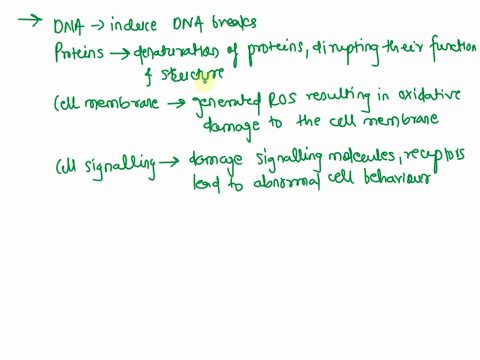 → DNA → induce DNA breaks
Proteins → denaturation of proteins, disrupting their function
& structure
Cell membrane → generated ROS resulting in oxidative
damage to the cell membrane
Cell signalling → damage signalling molecules, receptors
lead to abnormal cell behaviour